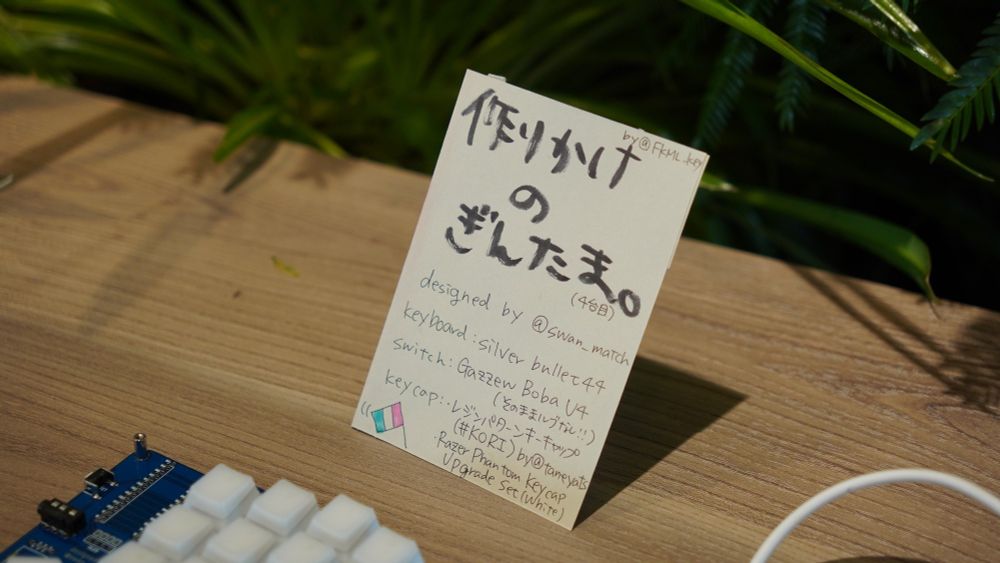 by@FKML_key
作りかけ
の
ぎんたま。
(4台目)
designed by @swan_match
keyboard:silver bullet44
switch:Gazzew Boba U4
(そのままルブなし!!)
keycap:・レジンパターンキーキャップ
(#KORI)by@taneyats
・Razer Phantom Keycap
Upgrade Set(White)